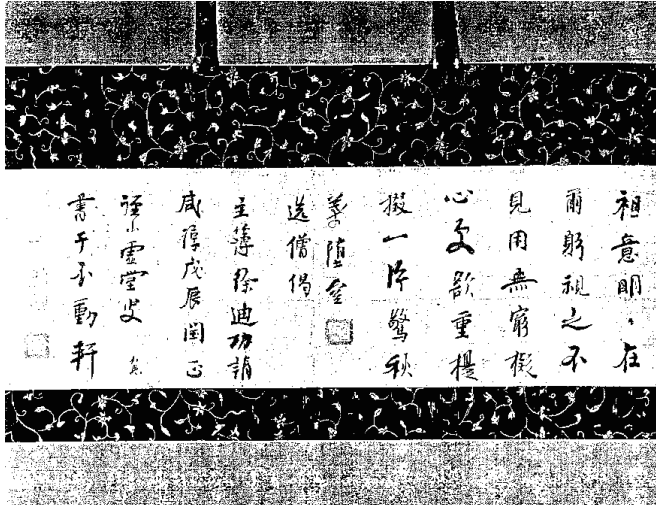 祖意明〻在
爾躬視之不
見用無窮擬
心更欲重提
掇一片驚秋
葉墮空
送僧偈
主簿徐迪功請
咸淳戊辰閏正
徑山虛堂叟
書于不動軒